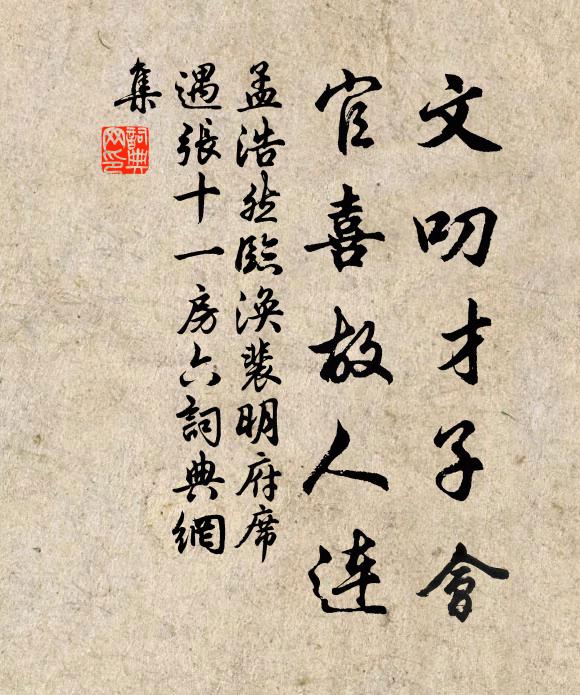 文叨才子會
官喜故人連
孟浩然臨渙裴明府席
遇張十一房六詞典網
集
詞典
网印